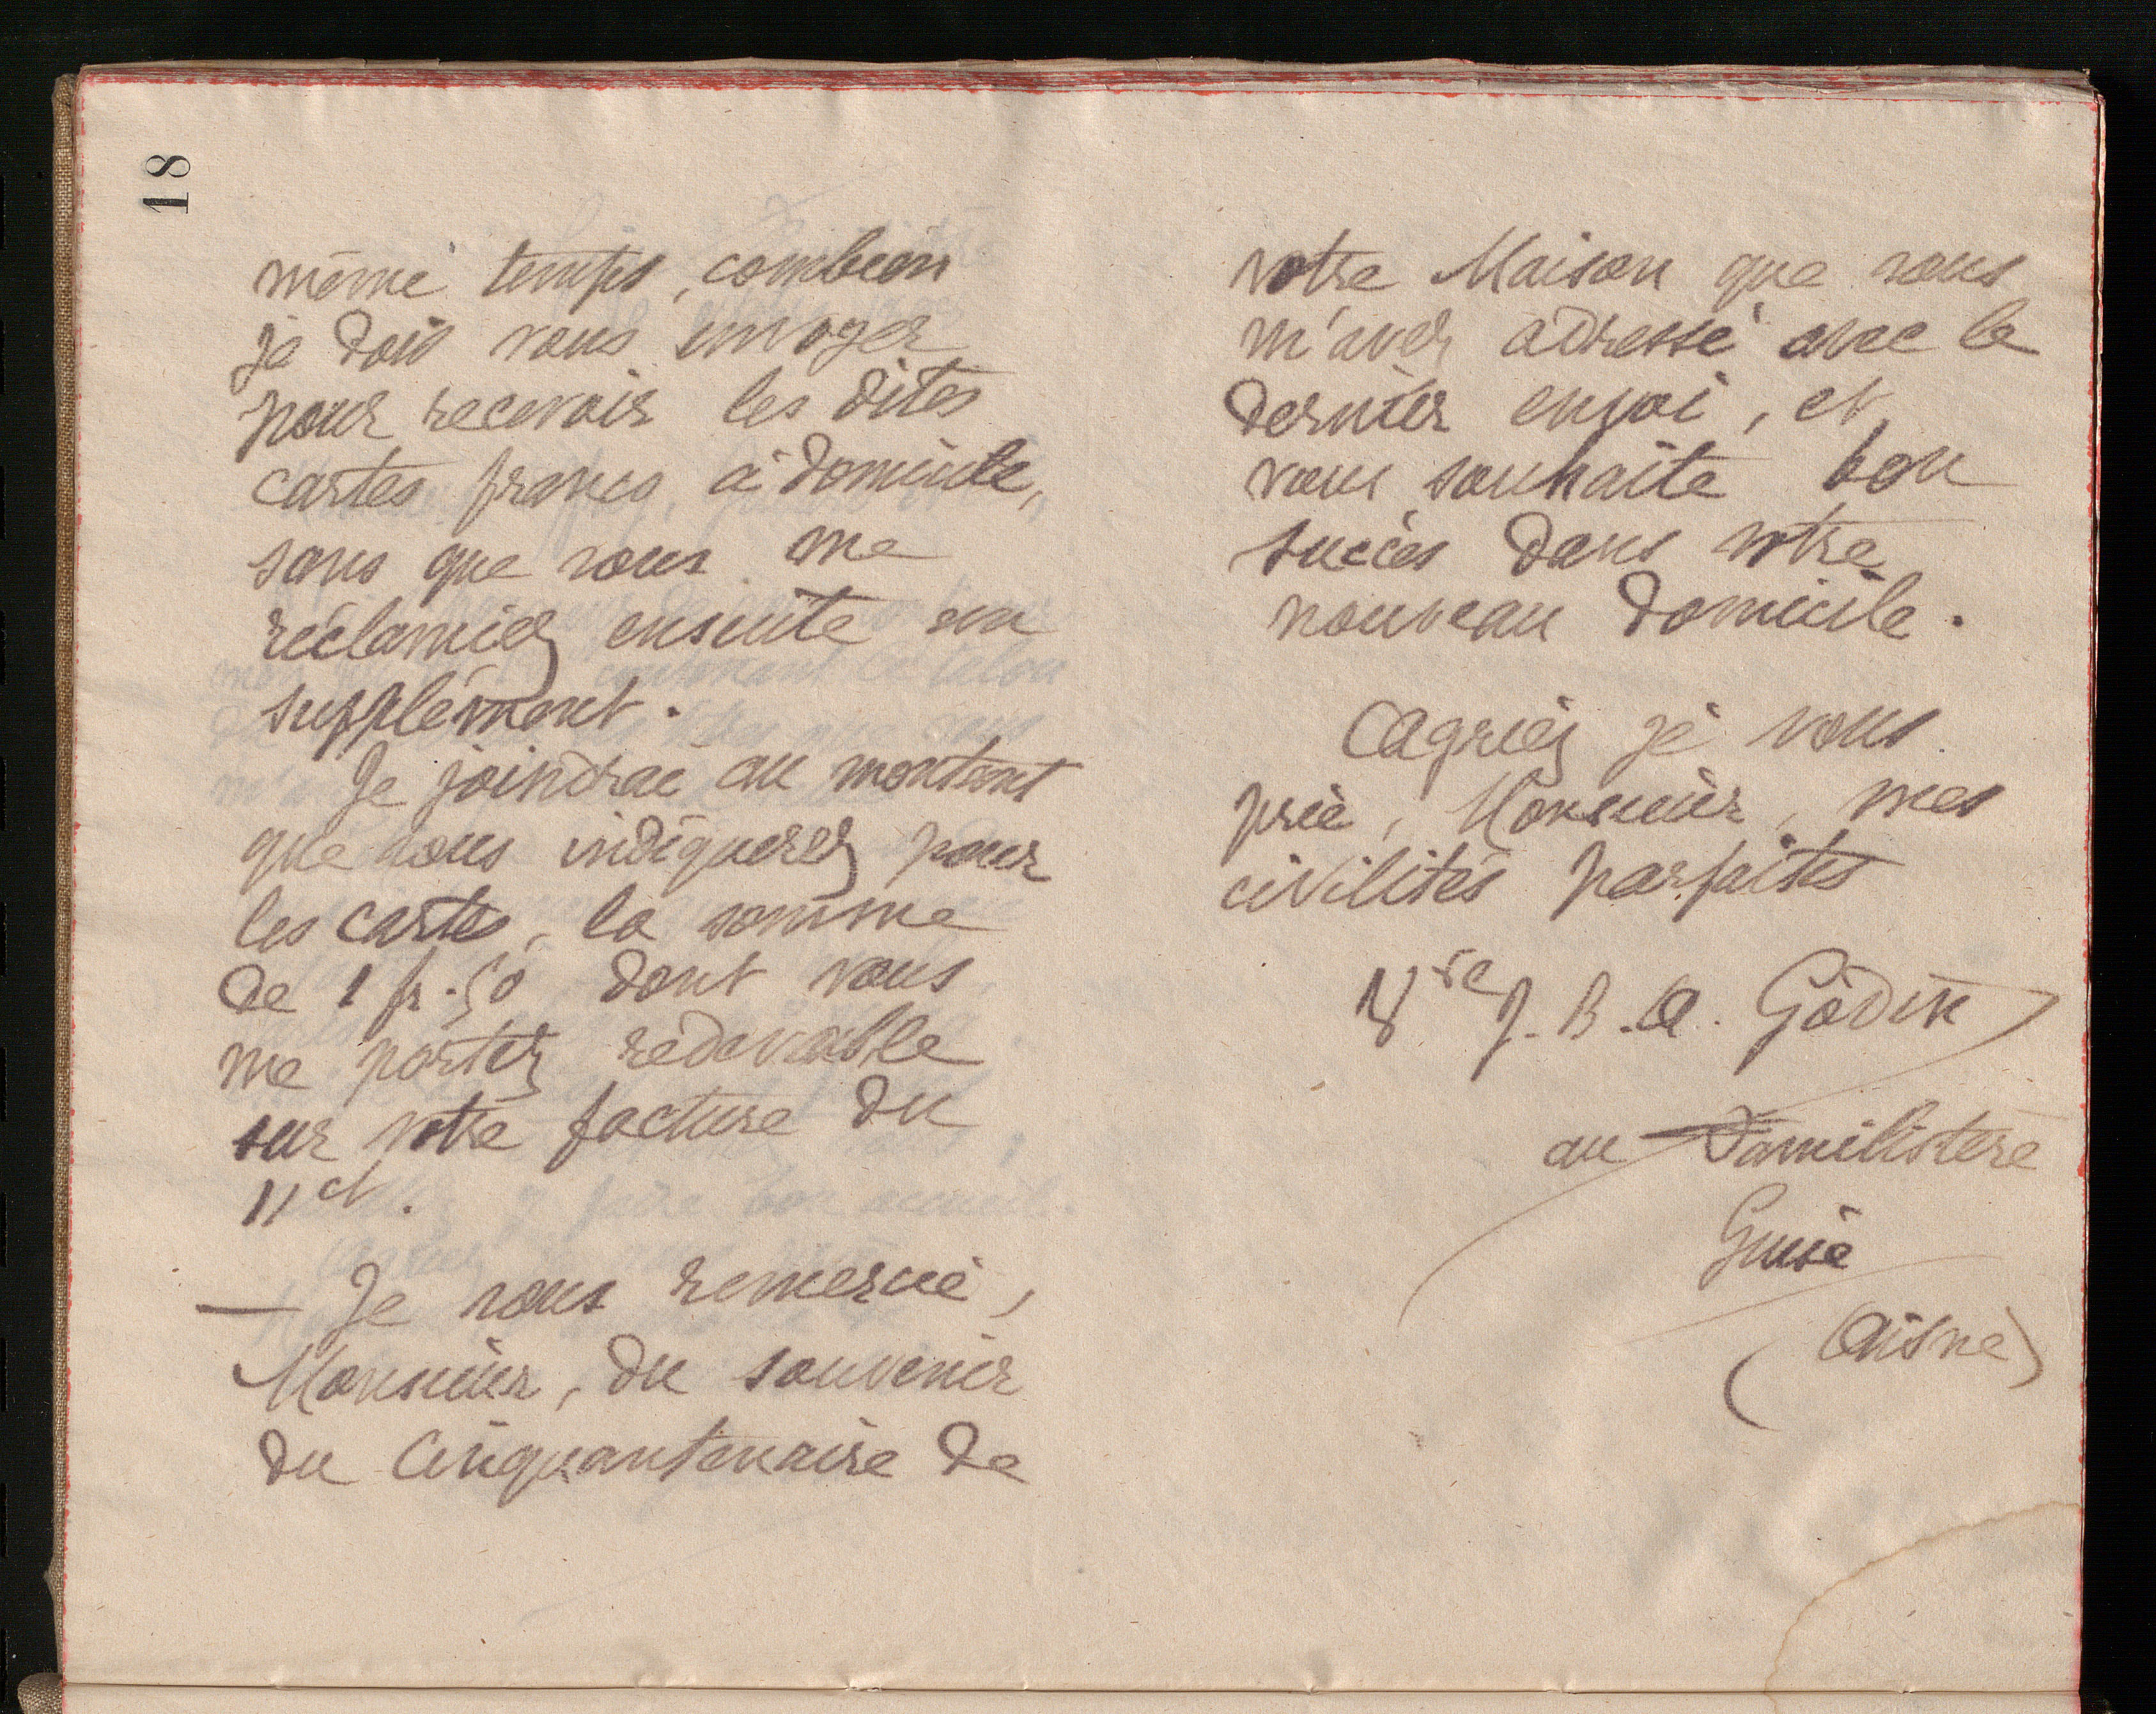 18
même temps, combien
je dois vous envoyer
pour recevoir les dites
cartes franco, à domicile,
sans que vous me
réclamiez ensuite un
supplément.
Je joindrai au montant
que vous indiquerez pour
les cartes, la somme
de 1 fr. 50 dont vous
me portez redevable
sur votre facture du
11 ct.
— Je vous remercie,
Monsieur, du souvenir
du Cinquantenaire de
votre Maison que vous
m'avez adressé avec le
dernier envoi, et
vous souhaite bon
succès dans votre
nouveau domicile.
Agréez je vous
prie, Monsieur, mes
civilités parfaites
Vve J. B. A. Godin
au Familistère
Guise
(Aisne)